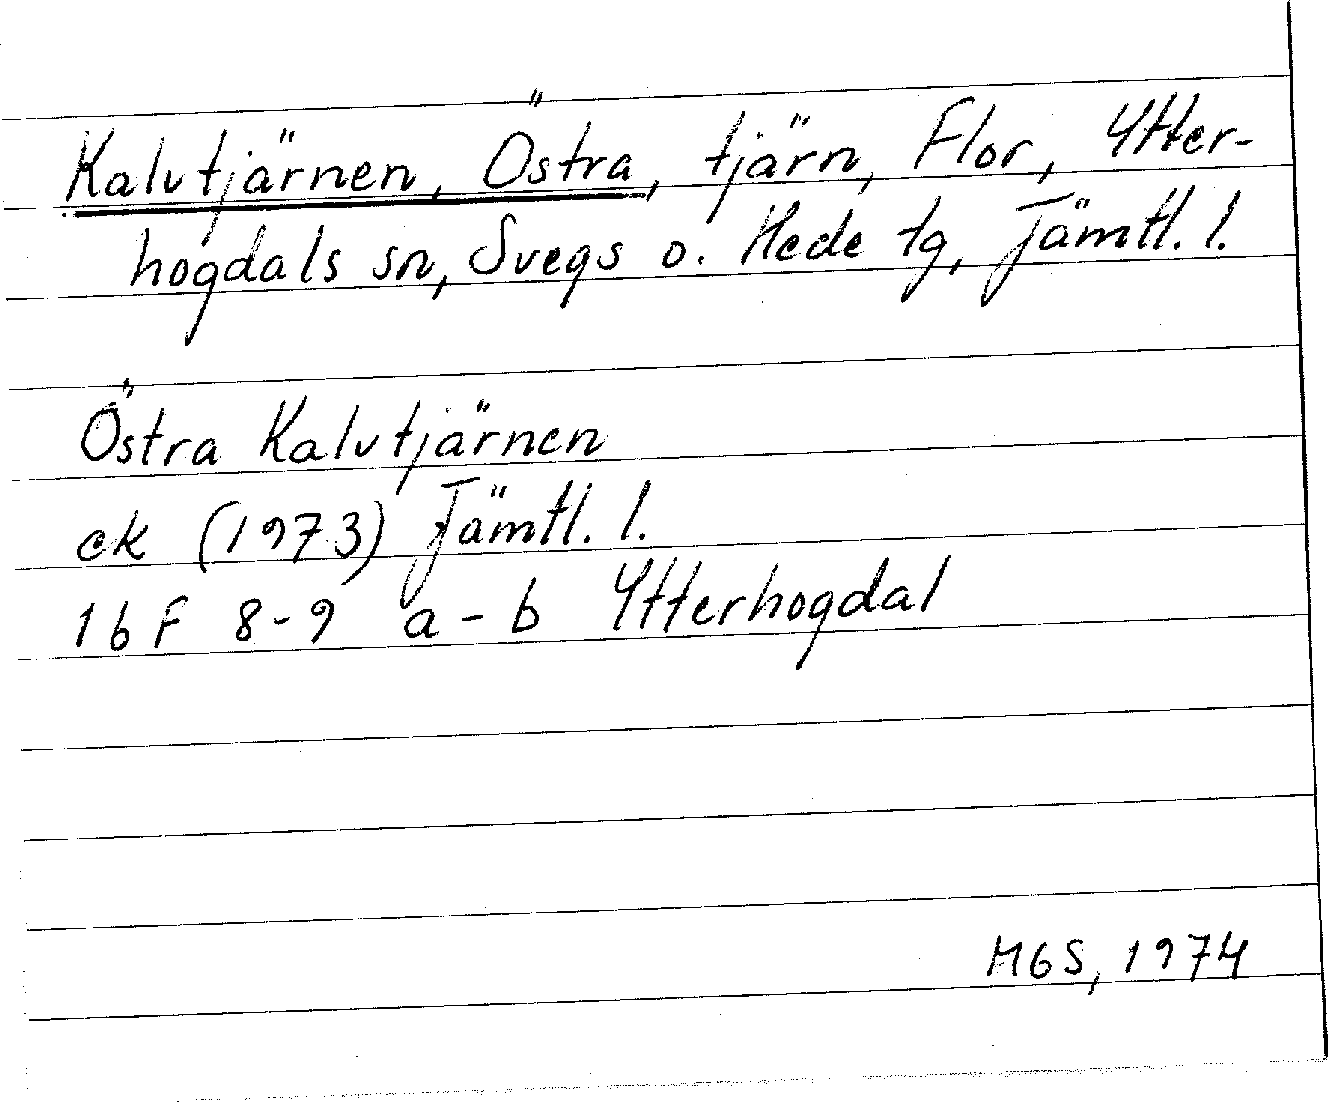 Kalvtjärnen, Östra, tjärn, Flor, Ytter-
hogdals sn, Svegs o. Hede tg, Jämtl. l.
Östra Kalvtjärnen
ek (1973) Jämtl. l.
16F 8-9 a-b Ytterhogdal
MGS, 1974